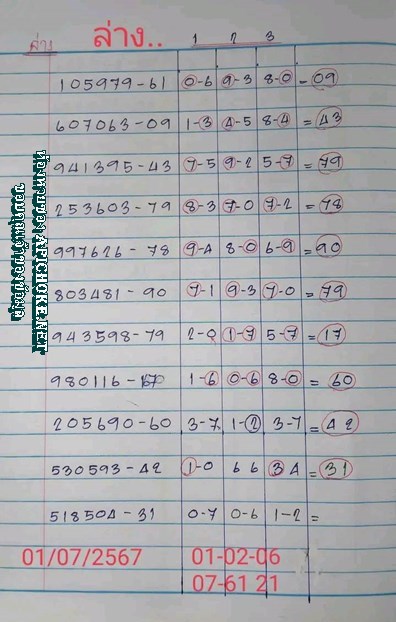 ล่าง..
1 2 3
105979-61 0-6 9-3 8-0 - 09
607063-09 1-3 4-5 8-4 = 43
941395-43 7-5 9-2 5-7 = 79
253603-79 8-3 7-0 7-2 = 78
997626-78 9-4 8-0 6-9 = 90
803481-90 7-1 9-3 7-0 = 79
943598-79 2-0 1-7 5-7 = 17
980116- 1-6 0-6 8-0 = 60
205690-60 3-7 1-2 3-7 = 42
530593-42 1-0 6 6 3 4 = 31
518504-31 0-7 0-6 1-2 =
01/07/2567 01-02-06
07-61 21
APICHOKE.NET